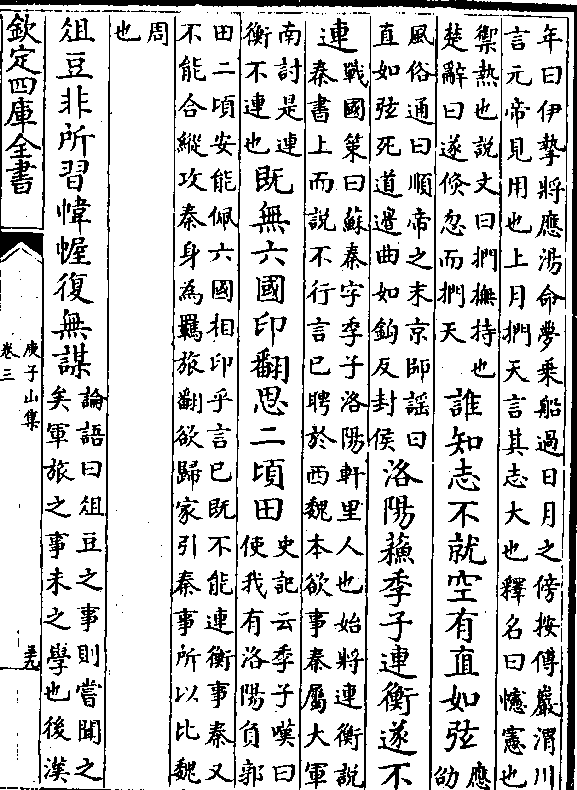 年曰伊摯將應湯命夢乗船過日月之傍按傅巖渭川
言元帝見用也上月捫天言其志大也釋名曰幰憲也
禦熱也說文曰捫撫持也
楚辭曰遂倏忽而捫天
誰知志不就空有直如弦
應劭
風俗通曰順帝之末京師謡曰
直如弦死道邊曲如鈎反封侯
洛陽蘇季子連衡遂不
連
戰國策曰蘇秦字季子洛陽軒里人也始將連衡說
秦書上而說不行言已聘於西魏本欲事秦屬大軍
南討是連
衡不連也
既無六國印翻思二頃田
史記云季子嘆曰
使我有洛陽負郭
田二頃安能佩六國相印乎言已既不能連衡事秦又
不能合縱攻秦身為羈旅翻欲歸家引秦事所以比魏
周
也
俎豆非所習帷幄復無謀
論語曰俎豆之事則嘗聞之
矣軍旅之事未之學也後漢
欽定四庫全書
庾子山集
卷三